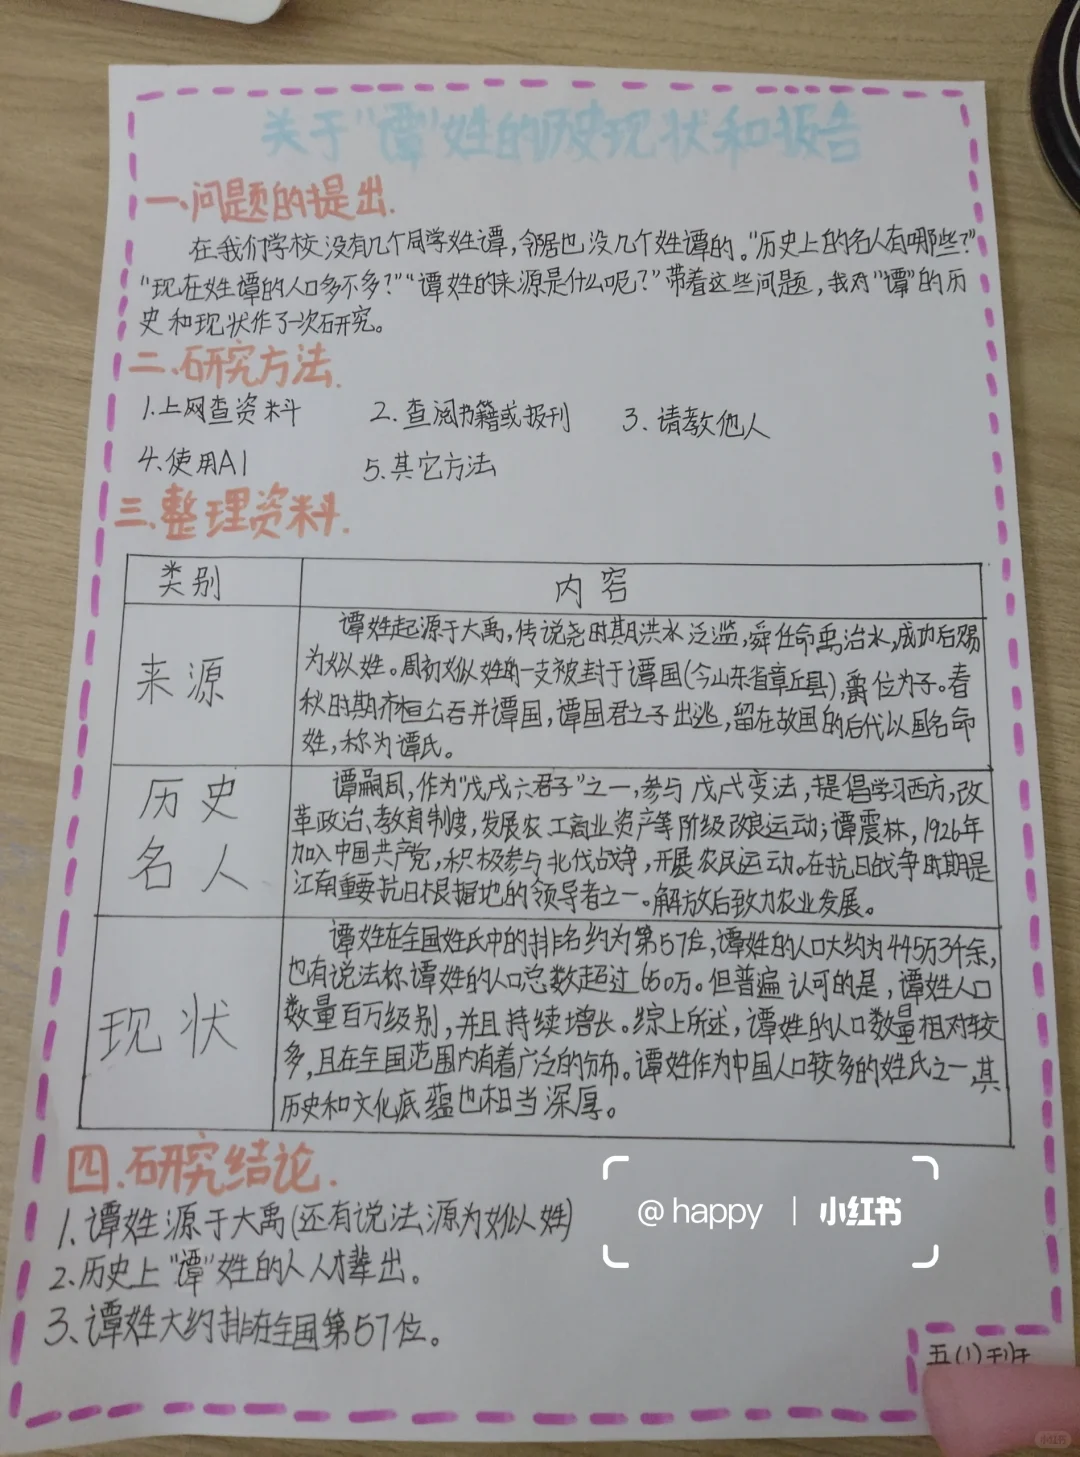 关于“谭”姓的历史现状和报告
一、问题的提出.
在我们学校没有几个同学姓谭,邻居也没几个姓谭的。“历史上的名人有哪些?”
“现在姓谭的人口多不多?”“谭姓的来源是什么呢?”带着这些问题,我对“谭”的历
史和现状作了一次研究。
二、研究方法.
1.上网查资料 2.查阅书籍或报刊 3.请教他人
4.使用AI 5.其它方法
三、整理资料.
类别 内容
来源
谭姓起源于大禹,传说尧时期洪水泛滥,舜任命禹治水,成功后赐
为姒姓。周初姒姓的一支被封于谭国(今山东省章丘县),爵位为子。春
秋时期齐桓公吞并谭国,谭国君之子出逃,留在故国的后代以国名命
姓,称为谭氏。
历史
名人
谭嗣同,作为“戊戌六君子”之一,参与戊戌变法,提倡学习西方,改
革政治、教育制度,发展农工商业资产等阶级改良运动;谭震林,1926年
加入中国共产党,积极参与北伐战争,开展农民运动。在抗日战争时期是
江南重要抗日根据地的领导者之一。解放后致力农业发展。
现状
谭姓在全国姓氏中的排名约为第57位,谭姓的人口大约为445万3千余,
也有说法称谭姓的人口总数超过650万。但普遍认可的是,谭姓人口
数量百万级别,并且持续增长。综上所述,谭姓的人口数量相对较
多,且在全国范围内有着广泛的分布。谭姓作为中国人口较多的姓氏之一,其
历史和文化底蕴也相当深厚。
四.研究结论.
1.谭姓源于大禹(还有说法源为姒姓)
2.历史上“谭”姓的人人才辈出。
3、谭姓大约排在全国第57位。
五(1)班
@happy | 小红书
小红书